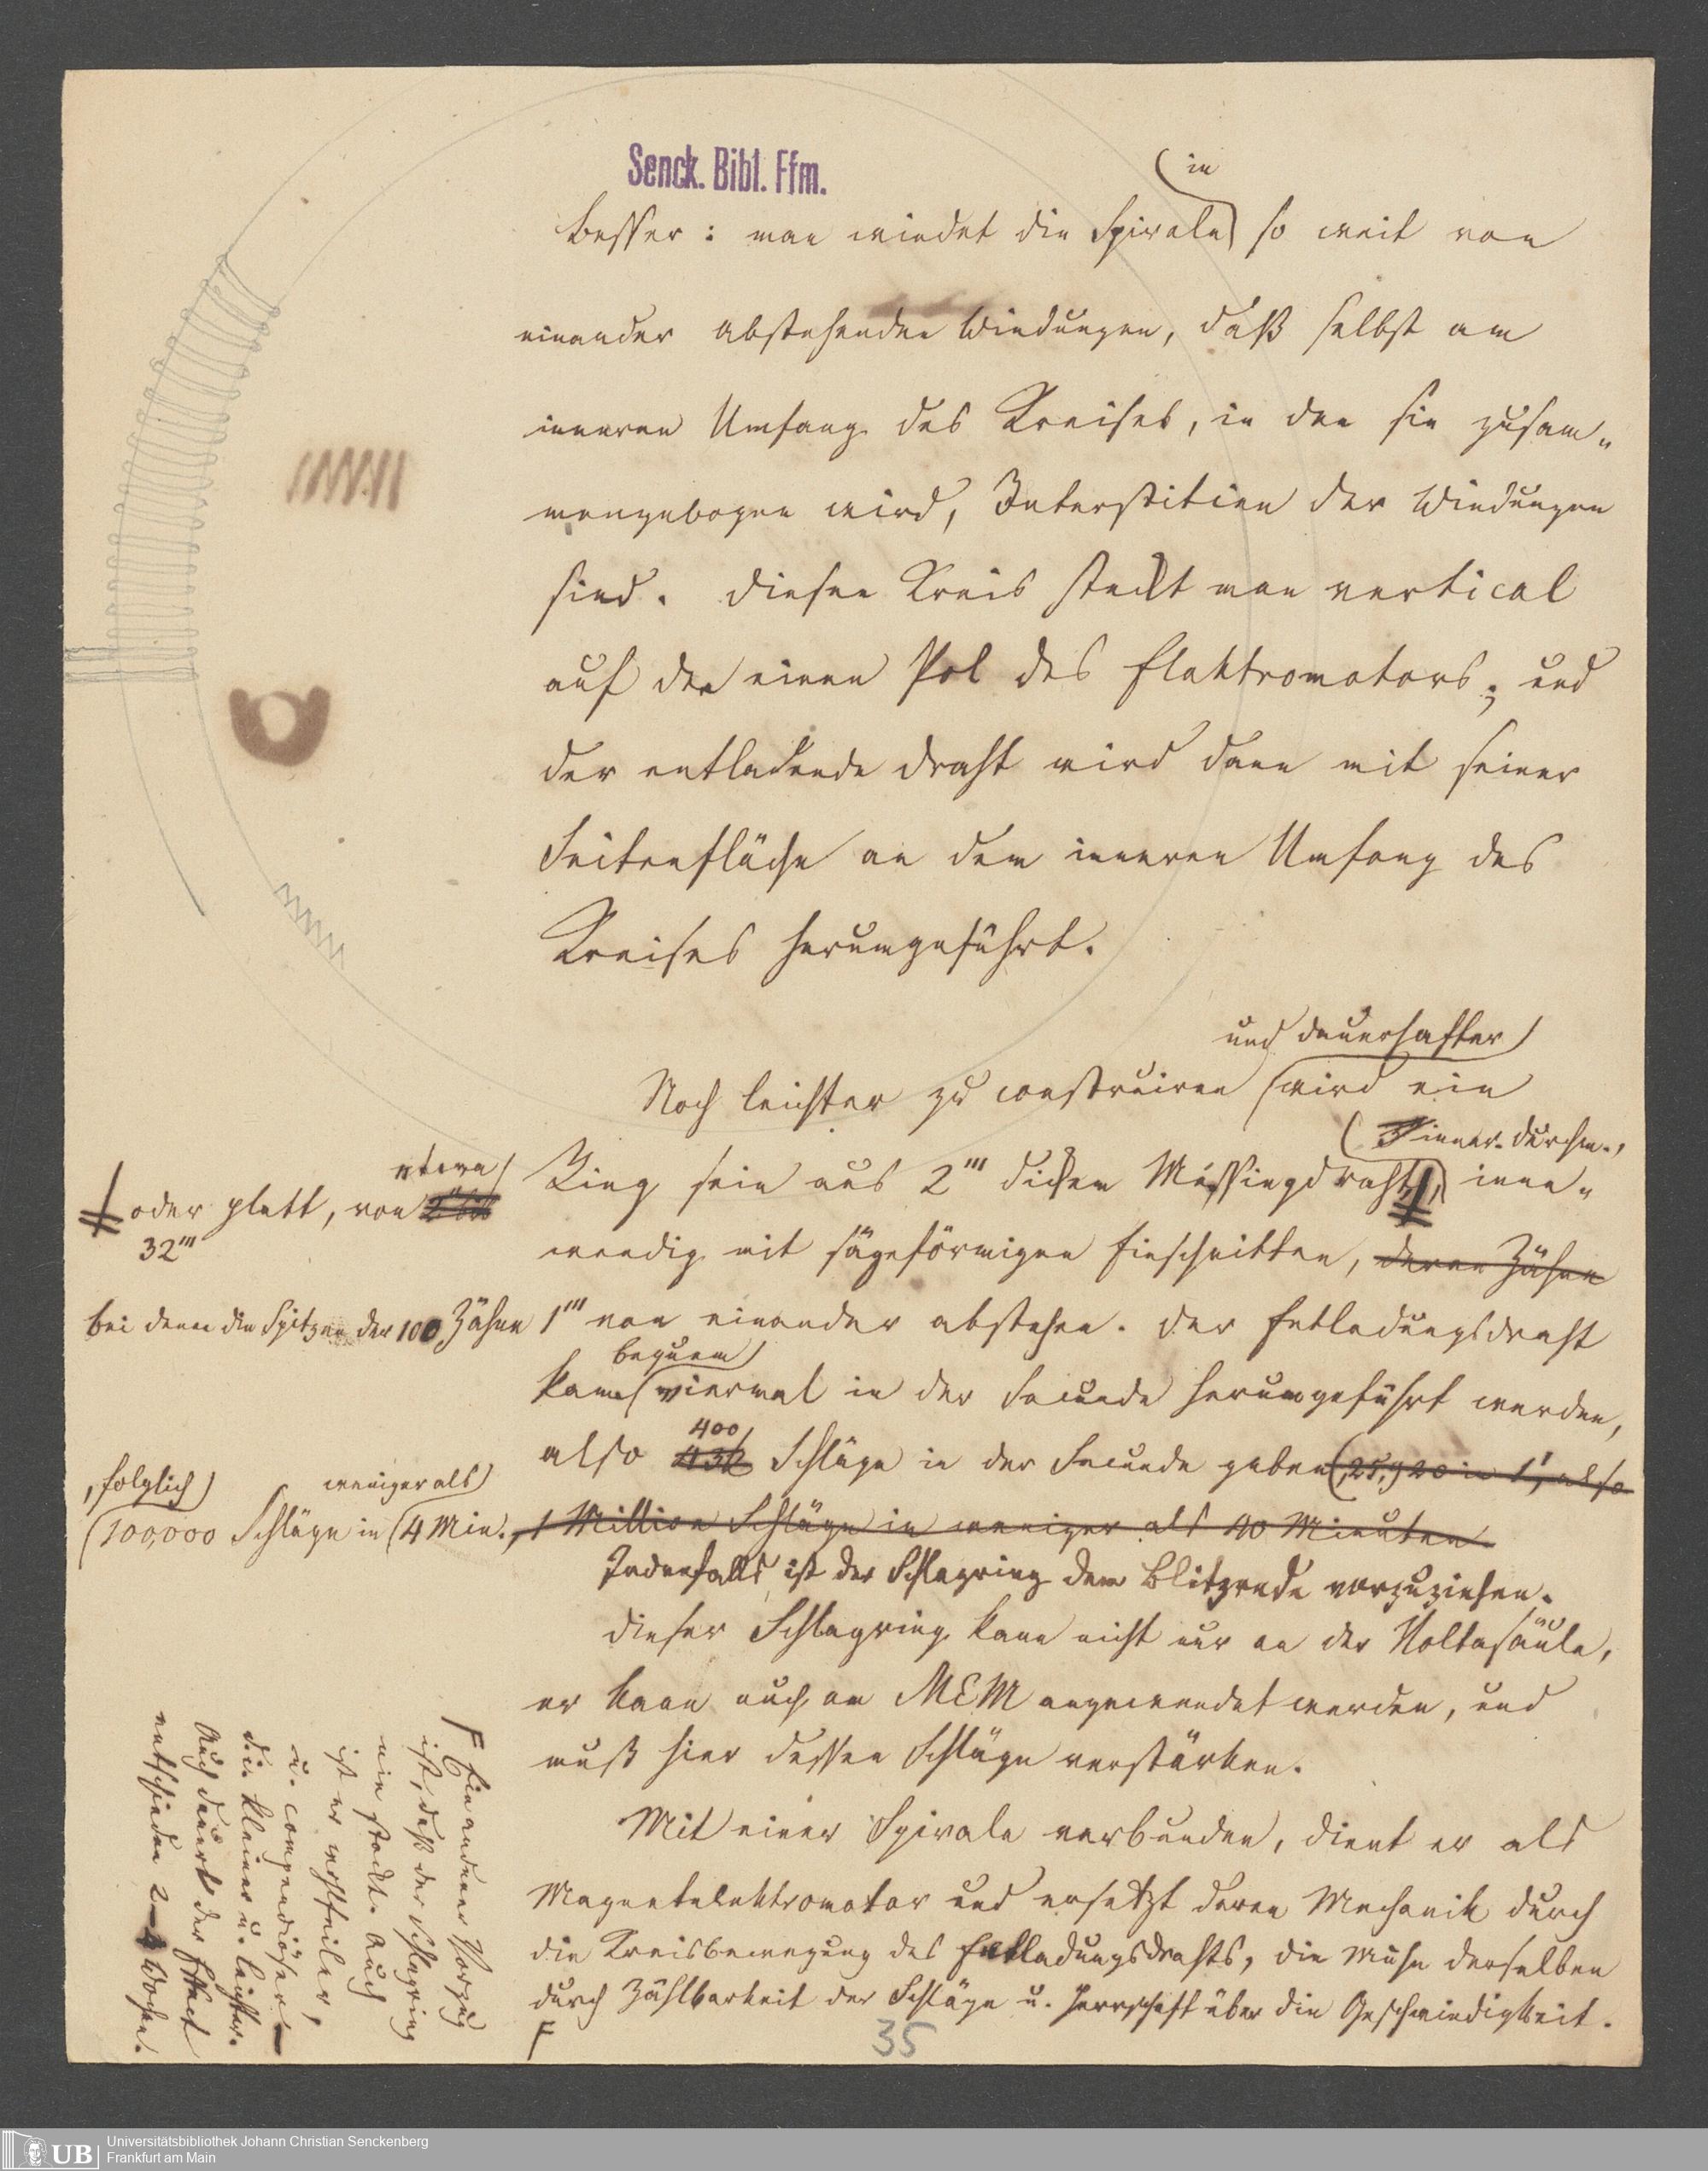 Senck. Bibl. Ffm.
in
Besser: man windet die Spirale so weit von
einander abstehenden Windungen, daß selbst am
inneren Umfang des Kreises, in den sie zusam„
mengebogen wird, Interstitien der Windungen
sind. Diesen Kreis steckt man vertical
auf den einen Pol des Elektromotors; und
der entladende Draht wird dann mit seiner
Seitenfläche an dem inneren Umfang des
Kreises herumgeführt.
und dauerhafter
Noch leichter zu construiren wird ein
inner. Durchm.,
Ring sein aus 2''' dicken Messingdraht, inne„
etwa
oder platt, von
32'''
wendig mit sägeförmigen Einschnitten, deren Zähne
bei denen die Spitzen der 100 Zähne
1''' von einander abstehen. Der Entladungsdraht
bequem
kann viermal in der Secunde herumgeführt werden,
400
also 432 Schläge in der Secunde geben, 25,920 in 1', also
, folglich weniger als
100,000 Schläge in 4 Min.
1 Million Schläge in weniger als 40 Minuten.
Jedenfalls ist der Schlagring dem Blitzrade vorzuziehen.
Dieser Schlagring kann nicht nur an der Voltasäule,
er kann auch an MEM angewendet werden, und
muß hier dessen Schläge verstärken.
Mit einer Spirale verbunden, dient er als
Magnetelektromotor und ersetzt deren Mechanik durch
die Kreisbewegung des Entladungsdrahts, die Mühe derselben
durch Zählbarkeit der Schläge u. Herrschaft über die Geschwindigkeit.
F
F Ein anderer Vorzug
ist, daß der Schlagring
nie stockt. Auch
ist er wohlfeiler,
u. compendiöser
die kleiner u. leichter.
Auch dauert der Effect
entschieden 2–4 Wochen.
35
UB
Universitätsbibliothek Johann Christian Senckenberg
Frankfurt am Main